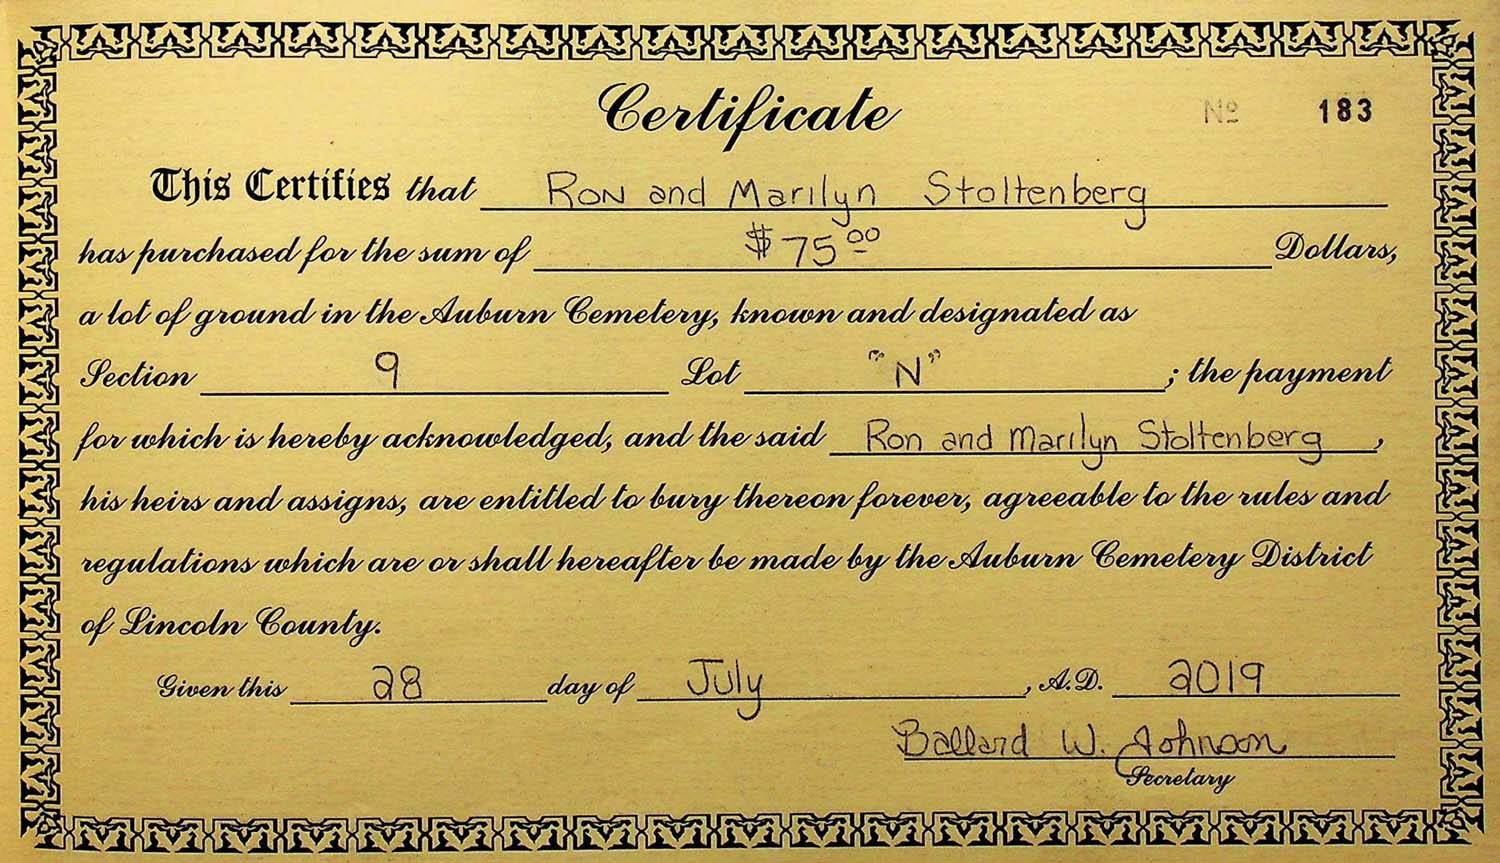 Certificate
Nº 183
This Certifies that Ron and Marilyn Stoltenberg
has purchased for the sum of $75 00 Dollars,
a lot of ground in the Auburn Cemetery, known and designated as
Section 9 Lot "N" ; the payment
for which is hereby acknowledged, and the said Ron and Marilyn Stoltenberg ,
his heirs and assigns, are entitled to bury thereon forever, agreeable to the rules and
regulations which are or shall hereafter be made by the Auburn Cemetery District
of Lincoln County.
Given this 28 day of July , A.D. 2019
Ballard W. Johnson
Secretary